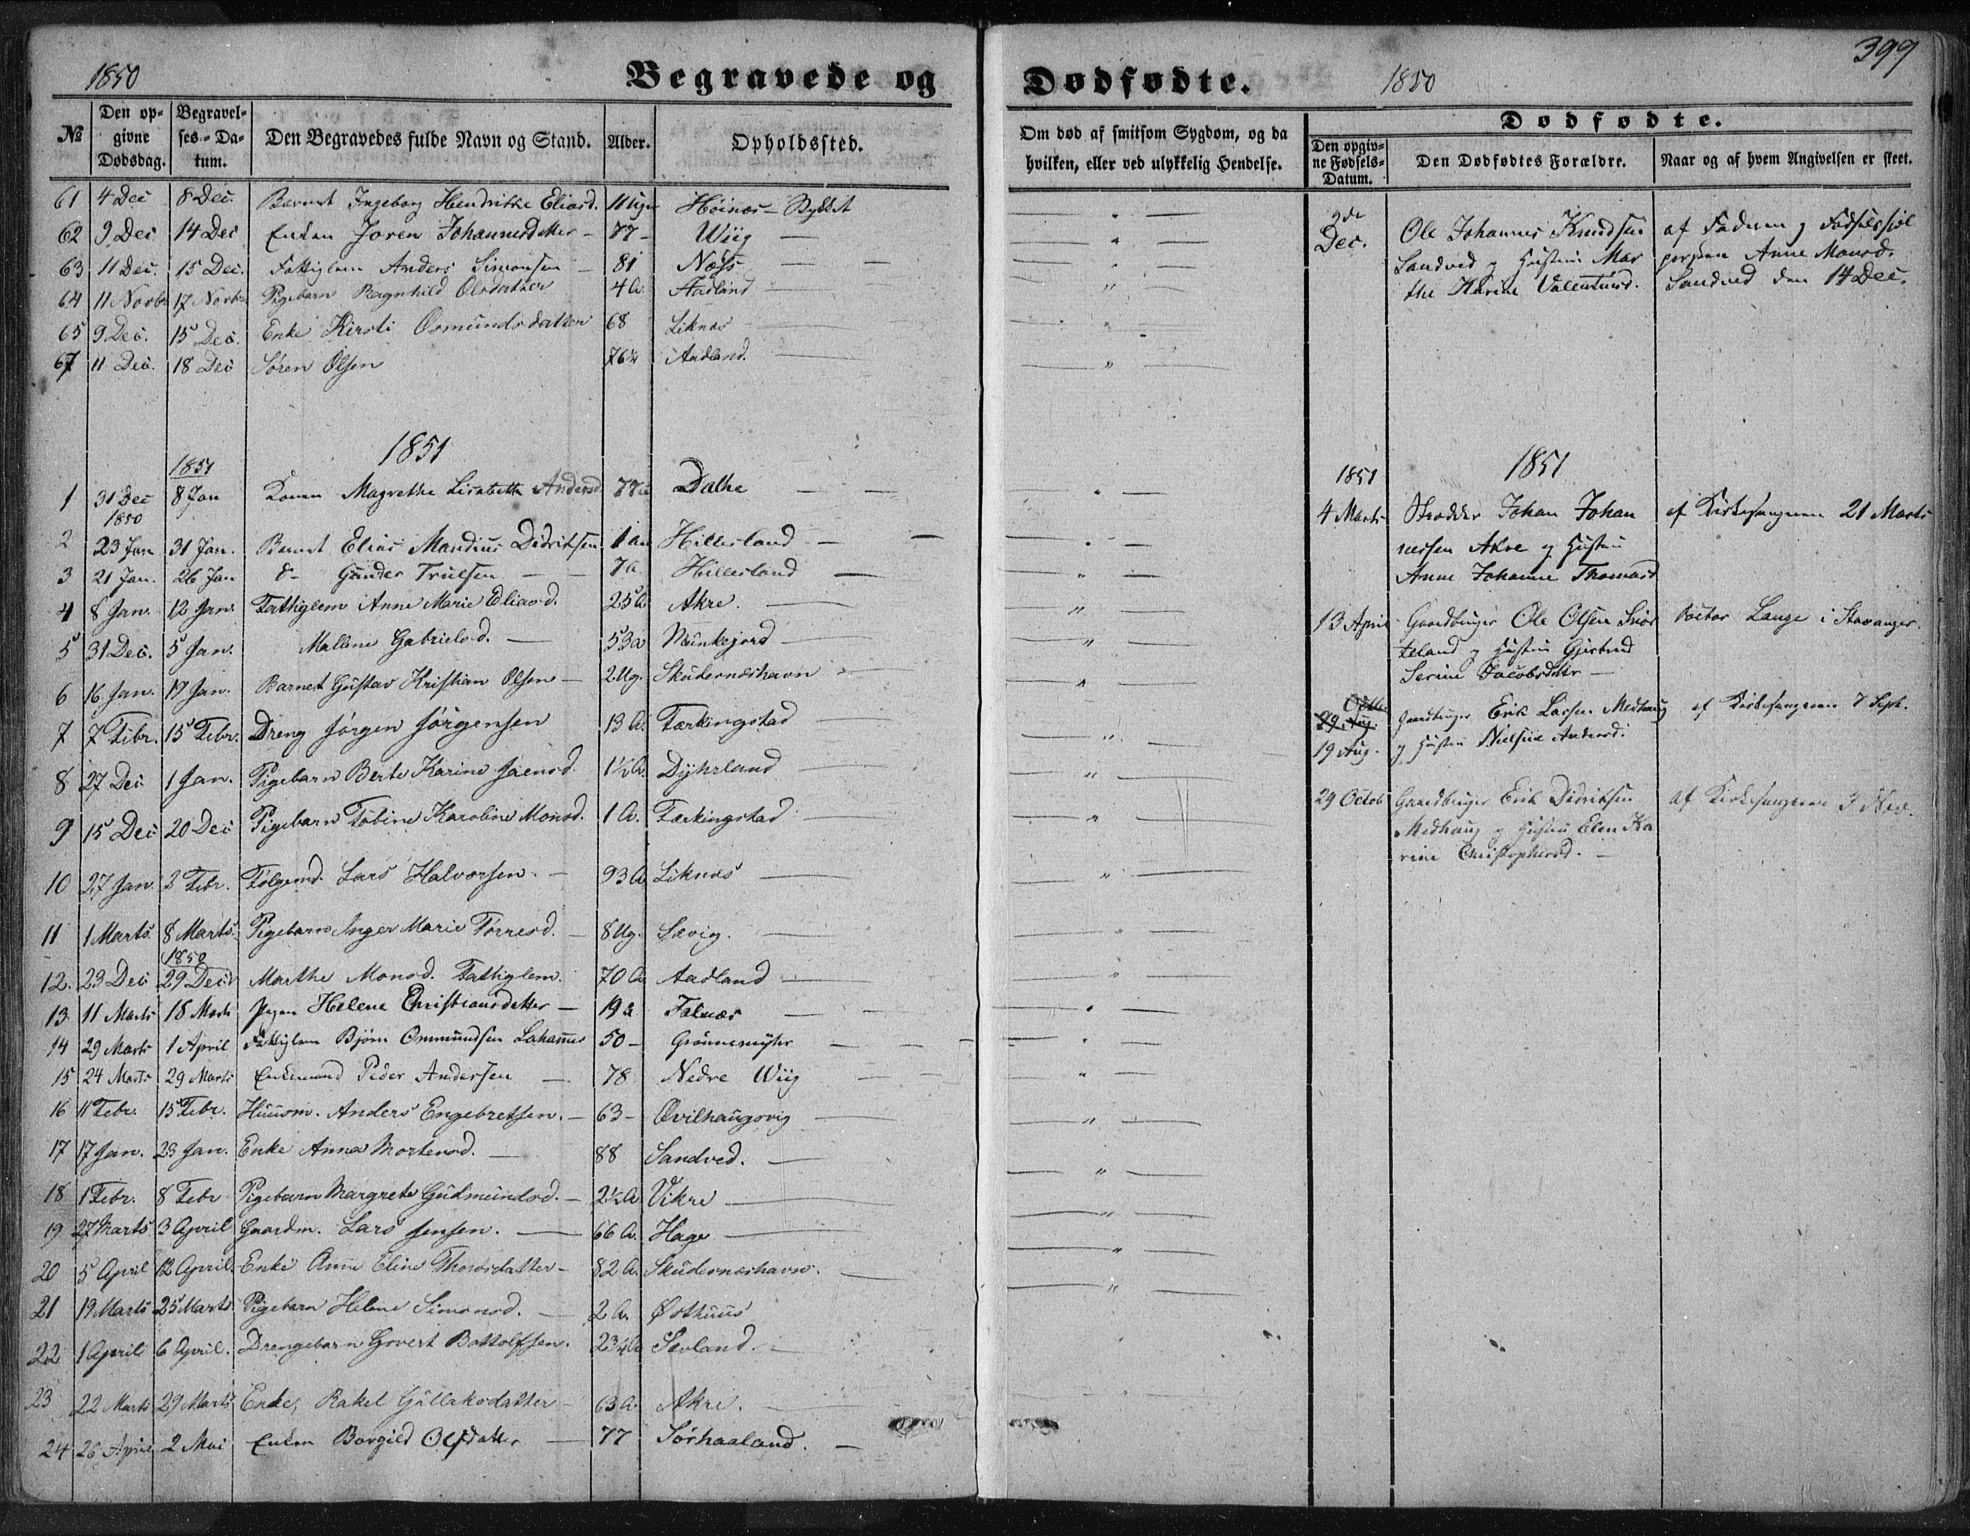 399
1850 Begravede og Dødfødte. 1850
№ Den opgivne Dødsdag. Begravelses-Datum. Den Begravedes fulde Navn og Stand. Alder. Opholdssted.
Om død af smitsom Sygdom, og da hvilken, eller ved ulykkelig Hendelse.
Dødfødte.
Den opgivne Fødsels-Datum. Den Dødfødtes Forældre. Naar og af hvem Angivelsen er skeet.
61 4 Dec 8 Dec. Barnet Ingeborg Hendrikke Eliasd. 11 Uger Høinæs
62 9 Dec 14 Dec Enken Joren Johannesdatter – 77 – Wiig —
63 11 Dec. 15 Dec. Fattiglem Anders Simonsen – 81 Næss —
64 11 Novbr 17 Novbr Pigebarn Ragnhild Olsdatter 4 A. Aadland —
65 9 Dec. 15 Dec. Enke Kirsti Osmundsdatter 68 Liknæs —
67 11 Dec. 18 Dec Søren Olsen 76 Aadland. —
1851
1851
1 31 Dec 1850 8 Jan Konen Magrethe Lisabeth Andersd 77 Dalhe — —
2 23 Jan 31 Jan. Barnet Elias Mandius Didriksen 1 aar Hillesland —
3 21 Jan. 26 Jan d– Gunder Truelsen — 7 A. Hillesland —
4 8 Jan. 12 Jan. Fattiglem Anne Marie Eliasd. 25 A. Akre. —
5 31 Dec. 5 Jan. Mallene Gabrielsd. — 53 a Munkejord —
6 16 Jan. 19 Jan. Barnet Gustav Kristian Olsen – 2 Ug. Skudernæshavn –
7 7 Febr. 15 Febr. Dreng Jørgen Jørgensen 13 A. Færkingstad —
8 27 Dec 1 Jan. Pigebarn Berte Karine Jaensd. 1½ A. Dyhrland —
9 15 Dec 20 Dec Pigebarn Tobine Karoline Monsd. 1 A. Færkingstad —
10 27 Jan. 2 Febr. Følgemd. Lars Halvorsen. – 93 A Liknæs —
11 1 Marts 8 Marts. Pigebarn Inger Marie Torresd. – 8 Ug. Sævig. —
12. 23 Dec 29 Decb 1850 Marthe Monsd. Fattiglem. 70 A Aadland —
13 11 Marts 18 Marts Pigen Helene Christiansdatter – 19 a Falnæs — —
14 29 Marts 1 April Fattiglem Bjørn Ommundsen 50 – Grønnemyhr —
15 24 Marts 29 Marts Enkemand Peder Andersen — 78 Nedre Wiig —
16 11 Febr. 15 Febr. Huusm. Anders Engebretsen. – 63 – Qvilhaugsvig —
17 17 Jan. 23 Jan. Enke Anna Mortensd. — 88 Sandved. —
18 1 Febr. 8 Febr Pigebarn Margrete Gudmundsd. – 2½ A Vikre —
19 27 Marts 3 April Gaardm. Lars Jensen. — 66 A. Hage —
20 5 April 12 April. Enke Anne Eline Thorsdatter – 82 A. Skudernæshavn. —
21 19 Marts 25 Marts. Pigebarn Helene Simonsd. — 2 A. Østhuus
22 1 April 6 April. Drengebarn Govert Bottolfsen. 2¾ A Sævland. —
23 22 Marts 29 Marts Enke, Rakel Gullaksdatter – 63 A. Akre. —
24 26 April 2 Mai Enken Borgild Olsdatter — 77 Sørhaaland. —
9de Dec. Ole Johannes Knudsen
Sandved og Hustru Mar
the Karine Valentinsd.
af Faderen og Fødselshjel
persken Anne Monsd.
Sandved den 14 Dec.
1851 1851
4 Marts Skrædder Johan Johan
nessen Akre og Hustru
Anne Johanne Thomasd
af Kirkesangeren 21 Marts
13 April Gaardbruger Ole Olsen
og Hustru Gjertrud
Serine Jacobsdatter —
Doctor Lange i Stavanger.
19 Aug. Gaardbruger Erik Larsen Medhaug
og Hustru Nielsine Andersd:
af Kirkesangeren 7 Sept.
29 Octob Gaardbruger Erik Didriksen
Medhaug og Hustru Elen Ka
rine Christophersd. —
af Kirkesangeren 3 Nov.